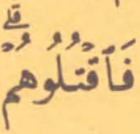 فَٱقۡتُلُوهُمۡۗ